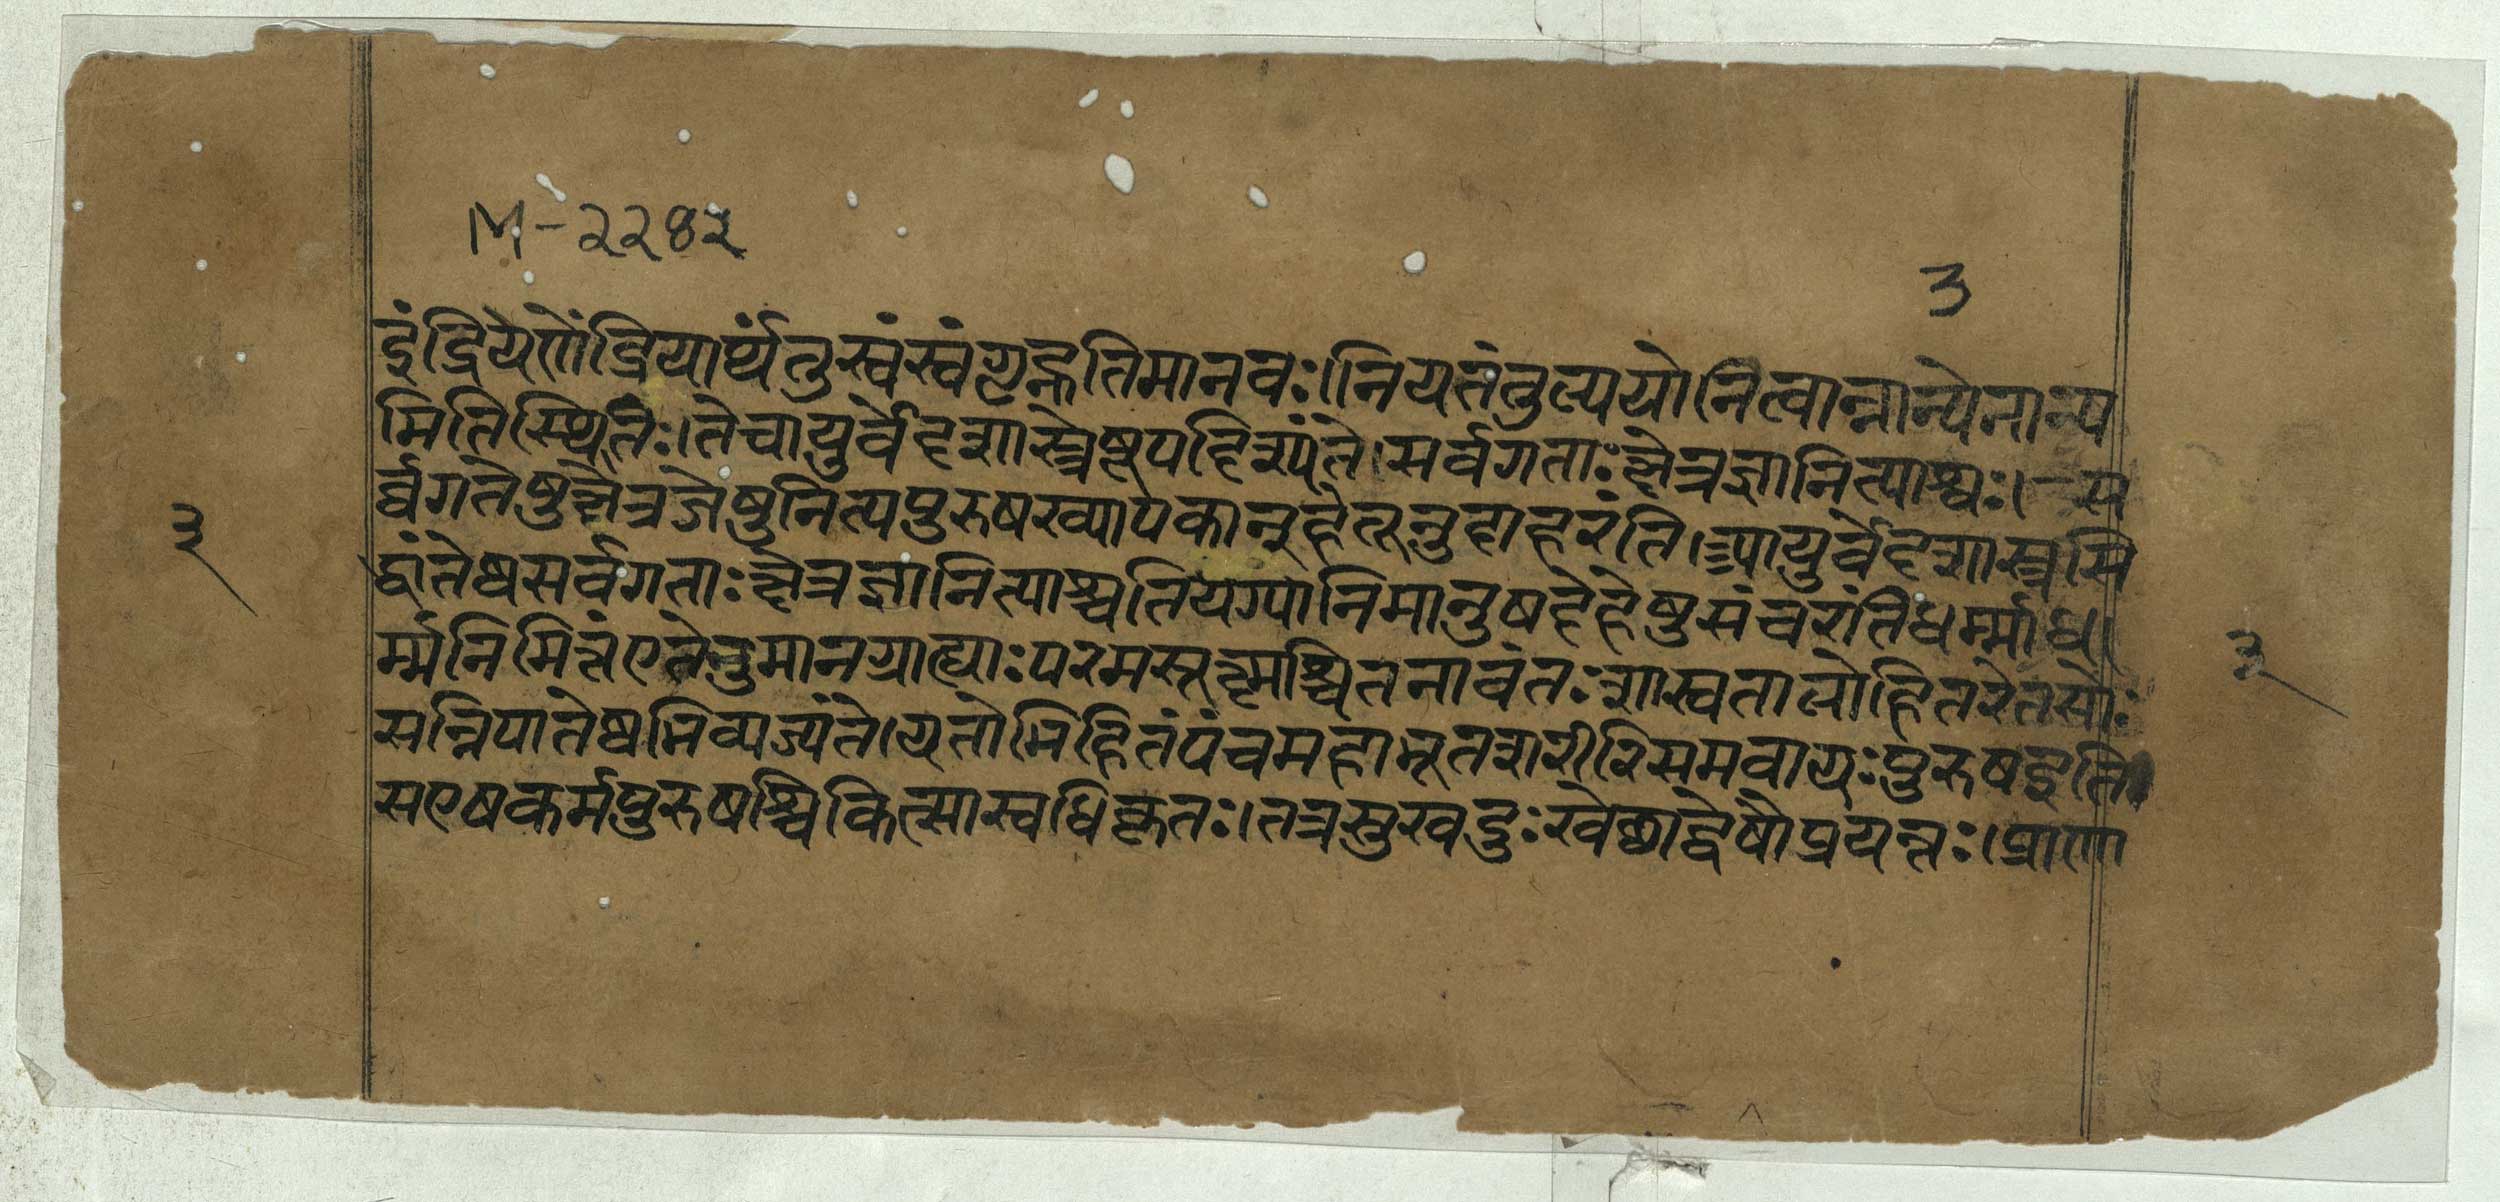 M-२२४२
3
इंद्रियेणेंद्रियार्थंतुस्वंस्वंगृह्णतिमानवः।नियतंतुल्ययोनित्वान्नान्येनान्य
मितिस्थितिः।तेचायुर्वेदशास्त्रेषूपदिश्यंते।सर्वगताःक्षेत्रज्ञानित्याश्चः।स
र्व्वगतेषुक्षेत्रज्ञेषुनित्यपुरुषख्यापकान्हेतूनुदाहरंति।आयुर्वेदशास्त्रसि
द्धांतेष्वसर्वगताःक्षेत्रज्ञानित्याश्चतिर्यग्योनिमानुषदेहेषुसंचरंतिधर्म्माध
र्म्मनिमित्तंएतेनुमानग्राह्याःपरमसूक्ष्माश्चितनावंतःशाश्वतालोहितरेतसोः
सन्निपातेष्वभिव्यज्यंते।यतोभिहितंपंचमहाभूतशरीरिसमवायःपुरुषइति।
सएषकर्मपुरुषश्चिकित्सास्वधिकृतः।तत्रसुखदुःखेछाद्वेषौप्रयत्नः।प्राणा
३
३